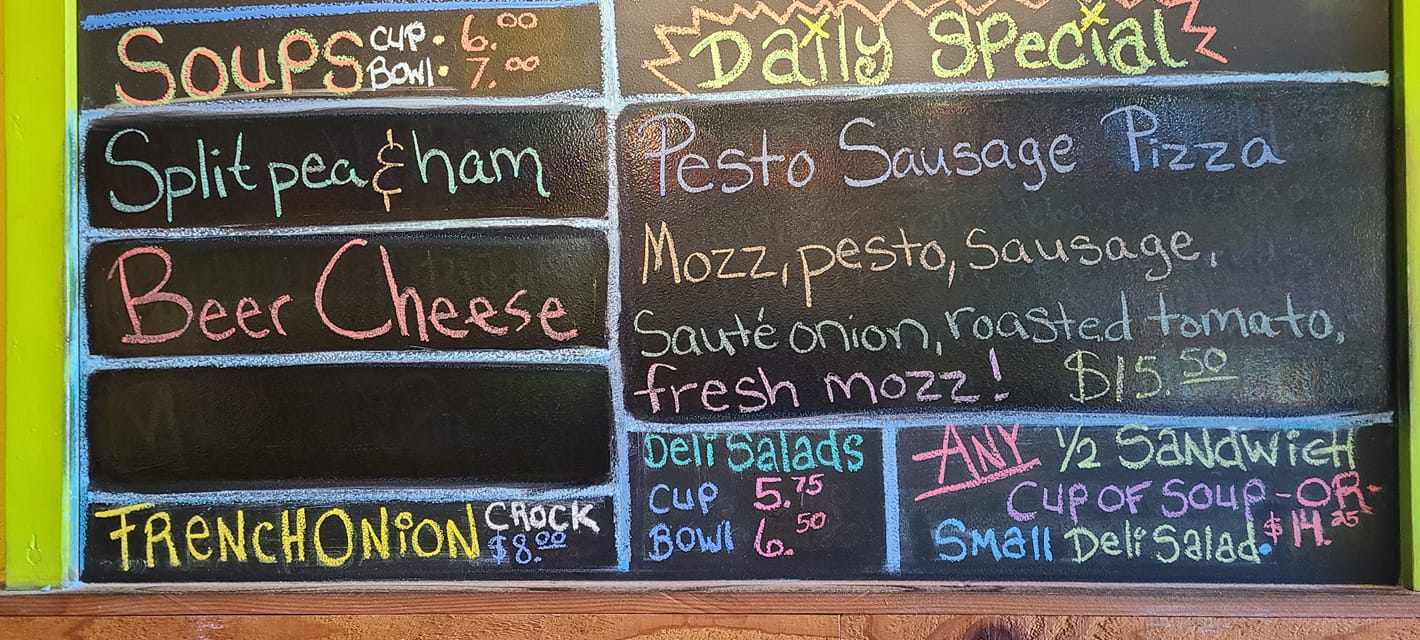 Soups CUP • 6.00
BOWl • 7.00
Split pea & ham
Beer Cheese
FRENCH ONiON CROCK
$8.00
Daily Special
Pesto Sausage Pizza
Mozz, pesto, Sausage,
Sauté onion, roasted tomato,
fresh mozz! $15.50
Deli Salads
CUP 5.75
BOWl 6.50
ANY 1/2 SANDWiCH
CUP OF SOUP -OR-
SMAll Deli Salad. $14.25